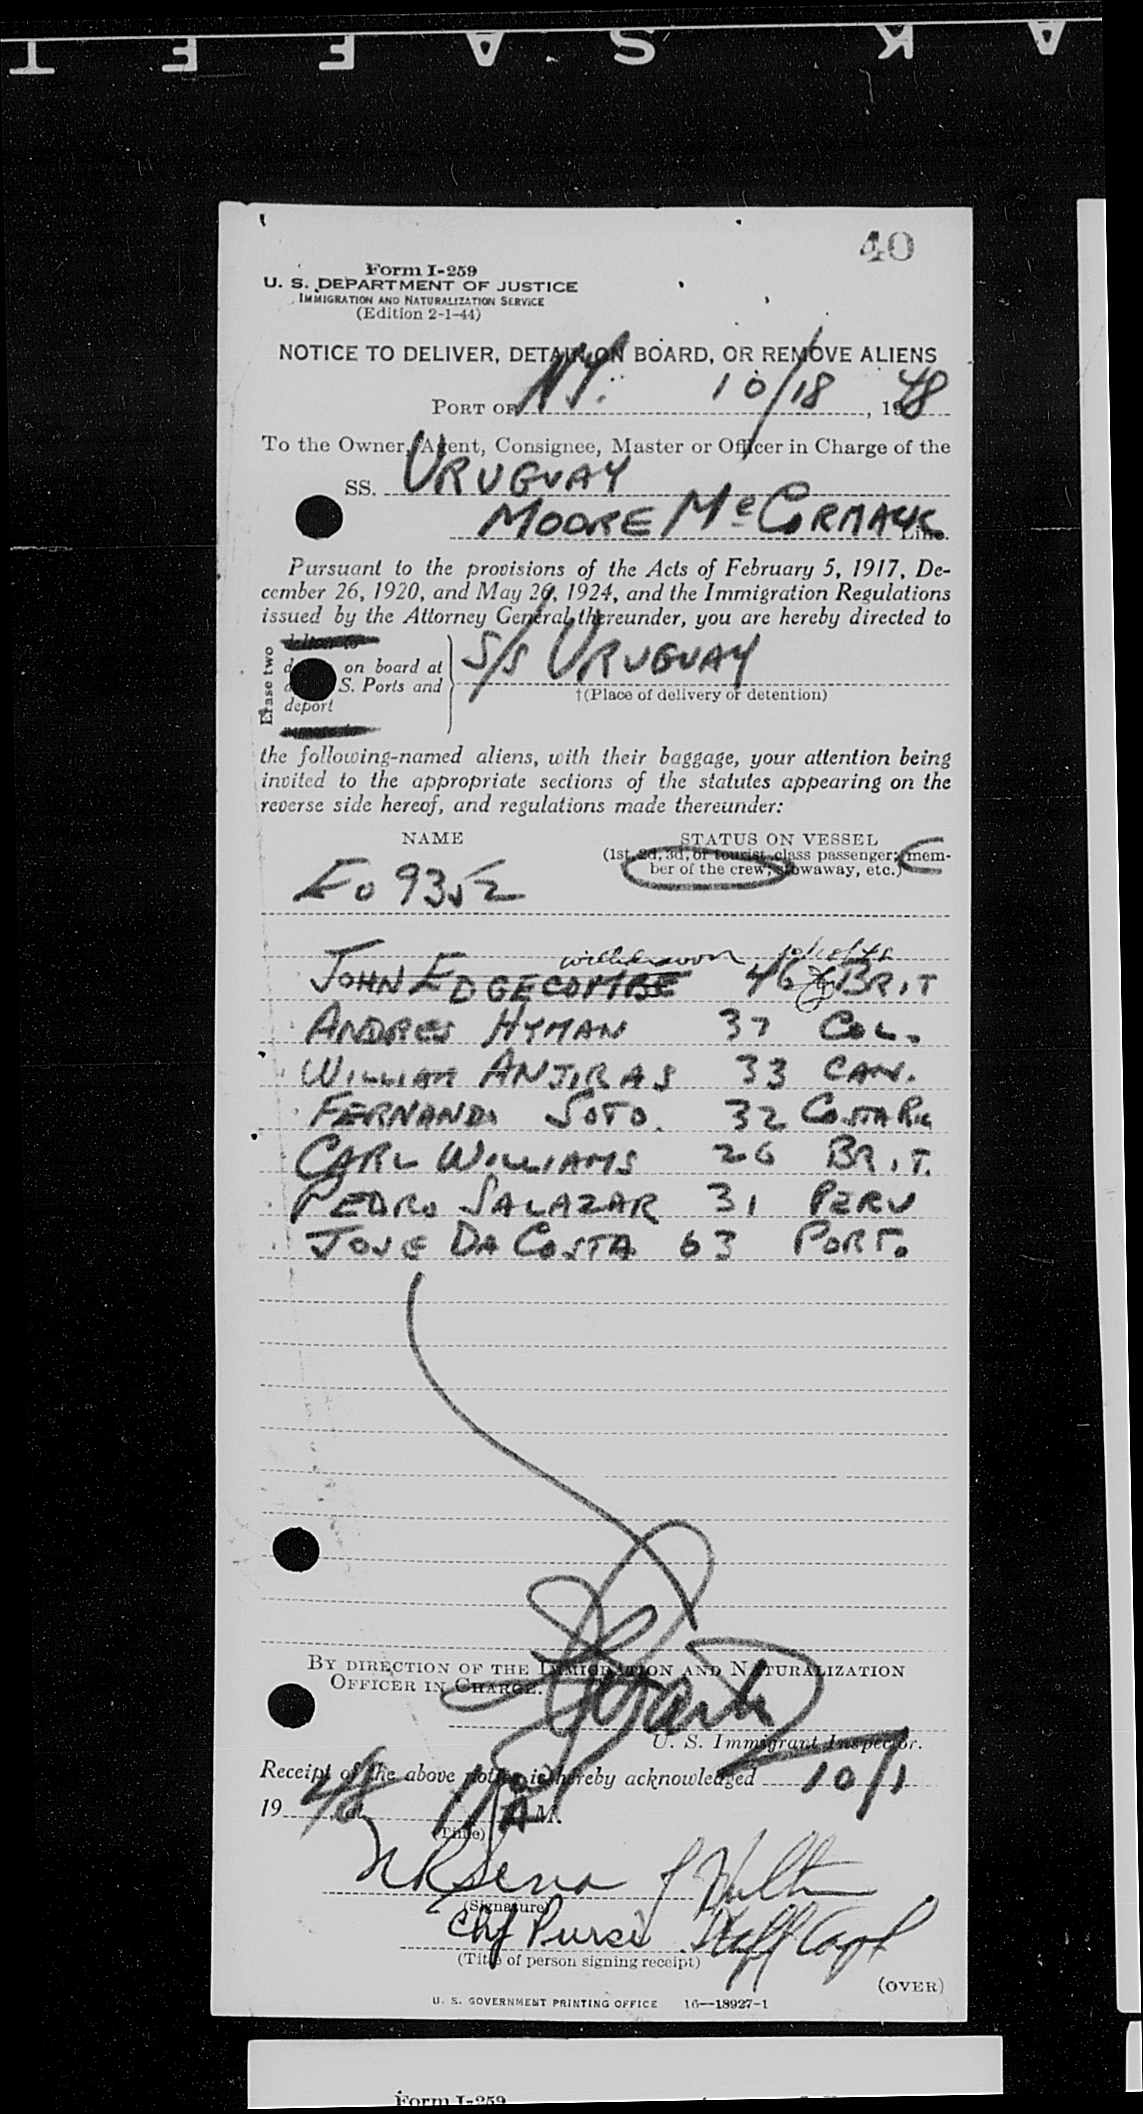 40
Form I-259
U. S. DEPARTMENT OF JUSTICE
IMMIGRATION AND NATURALIZATION SERVICE
(Edition 2-1-44)
NOTICE TO DELIVER, DETAIN ON BOARD, OR REMOVE ALIENS
PORT OF N.Y. 10/18, 1948
To the Owner, Agent, Consignee, Master or Officer in Charge of the
SS. URUGUAY
MOORE McCORMACK Line.
Pursuant to the provisions of the Acts of February 5, 1917, De-
cember 26, 1920, and May 26, 1924, and the Immigration Regulations
issued by the Attorney General thereunder, you are hereby directed to
Erase two
deliver to
on board at S/S URUGUAY
S. Ports and
†(Place of delivery or detention)
deport
remove to
the following-named aliens, with their baggage, your attention being
invited to the appropriate sections of the statutes appearing on the
reverse side hereof, and regulations made thereunder:
NAME STATUS ON VESSEL
(1st, 2d, 3d, or tourist class passenger; mem-
ber of the crew; stowaway, etc.)
EO 9352
withdrawn
JOHN EDGECOMBE 46 BRIT
ANDRES HYMAN 37 COL.
WILLIAM ANTIRAS 33 CAN.
FERNANDO SOTO. 32 COSTA RIC
CARL WILLIAMS 26 BRIT.
PEDRO SALAZAR 31 PERU
JOSE DA COSTA 63 PORT.
BY DIRECTION OF THE IMMIGRATION AND NATURALIZATION
OFFICER IN CHARGE.
U. S. Immigrant Inspector.
Receipt of the above notice is hereby acknowledged 10/1
1948, at 11 A M.
(Time)
(Signature)
Chf Purser Staff Capt
(Title of person signing receipt)
(OVER)
U. S. GOVERNMENT PRINTING OFFICE 16—18927-1
Form I-259